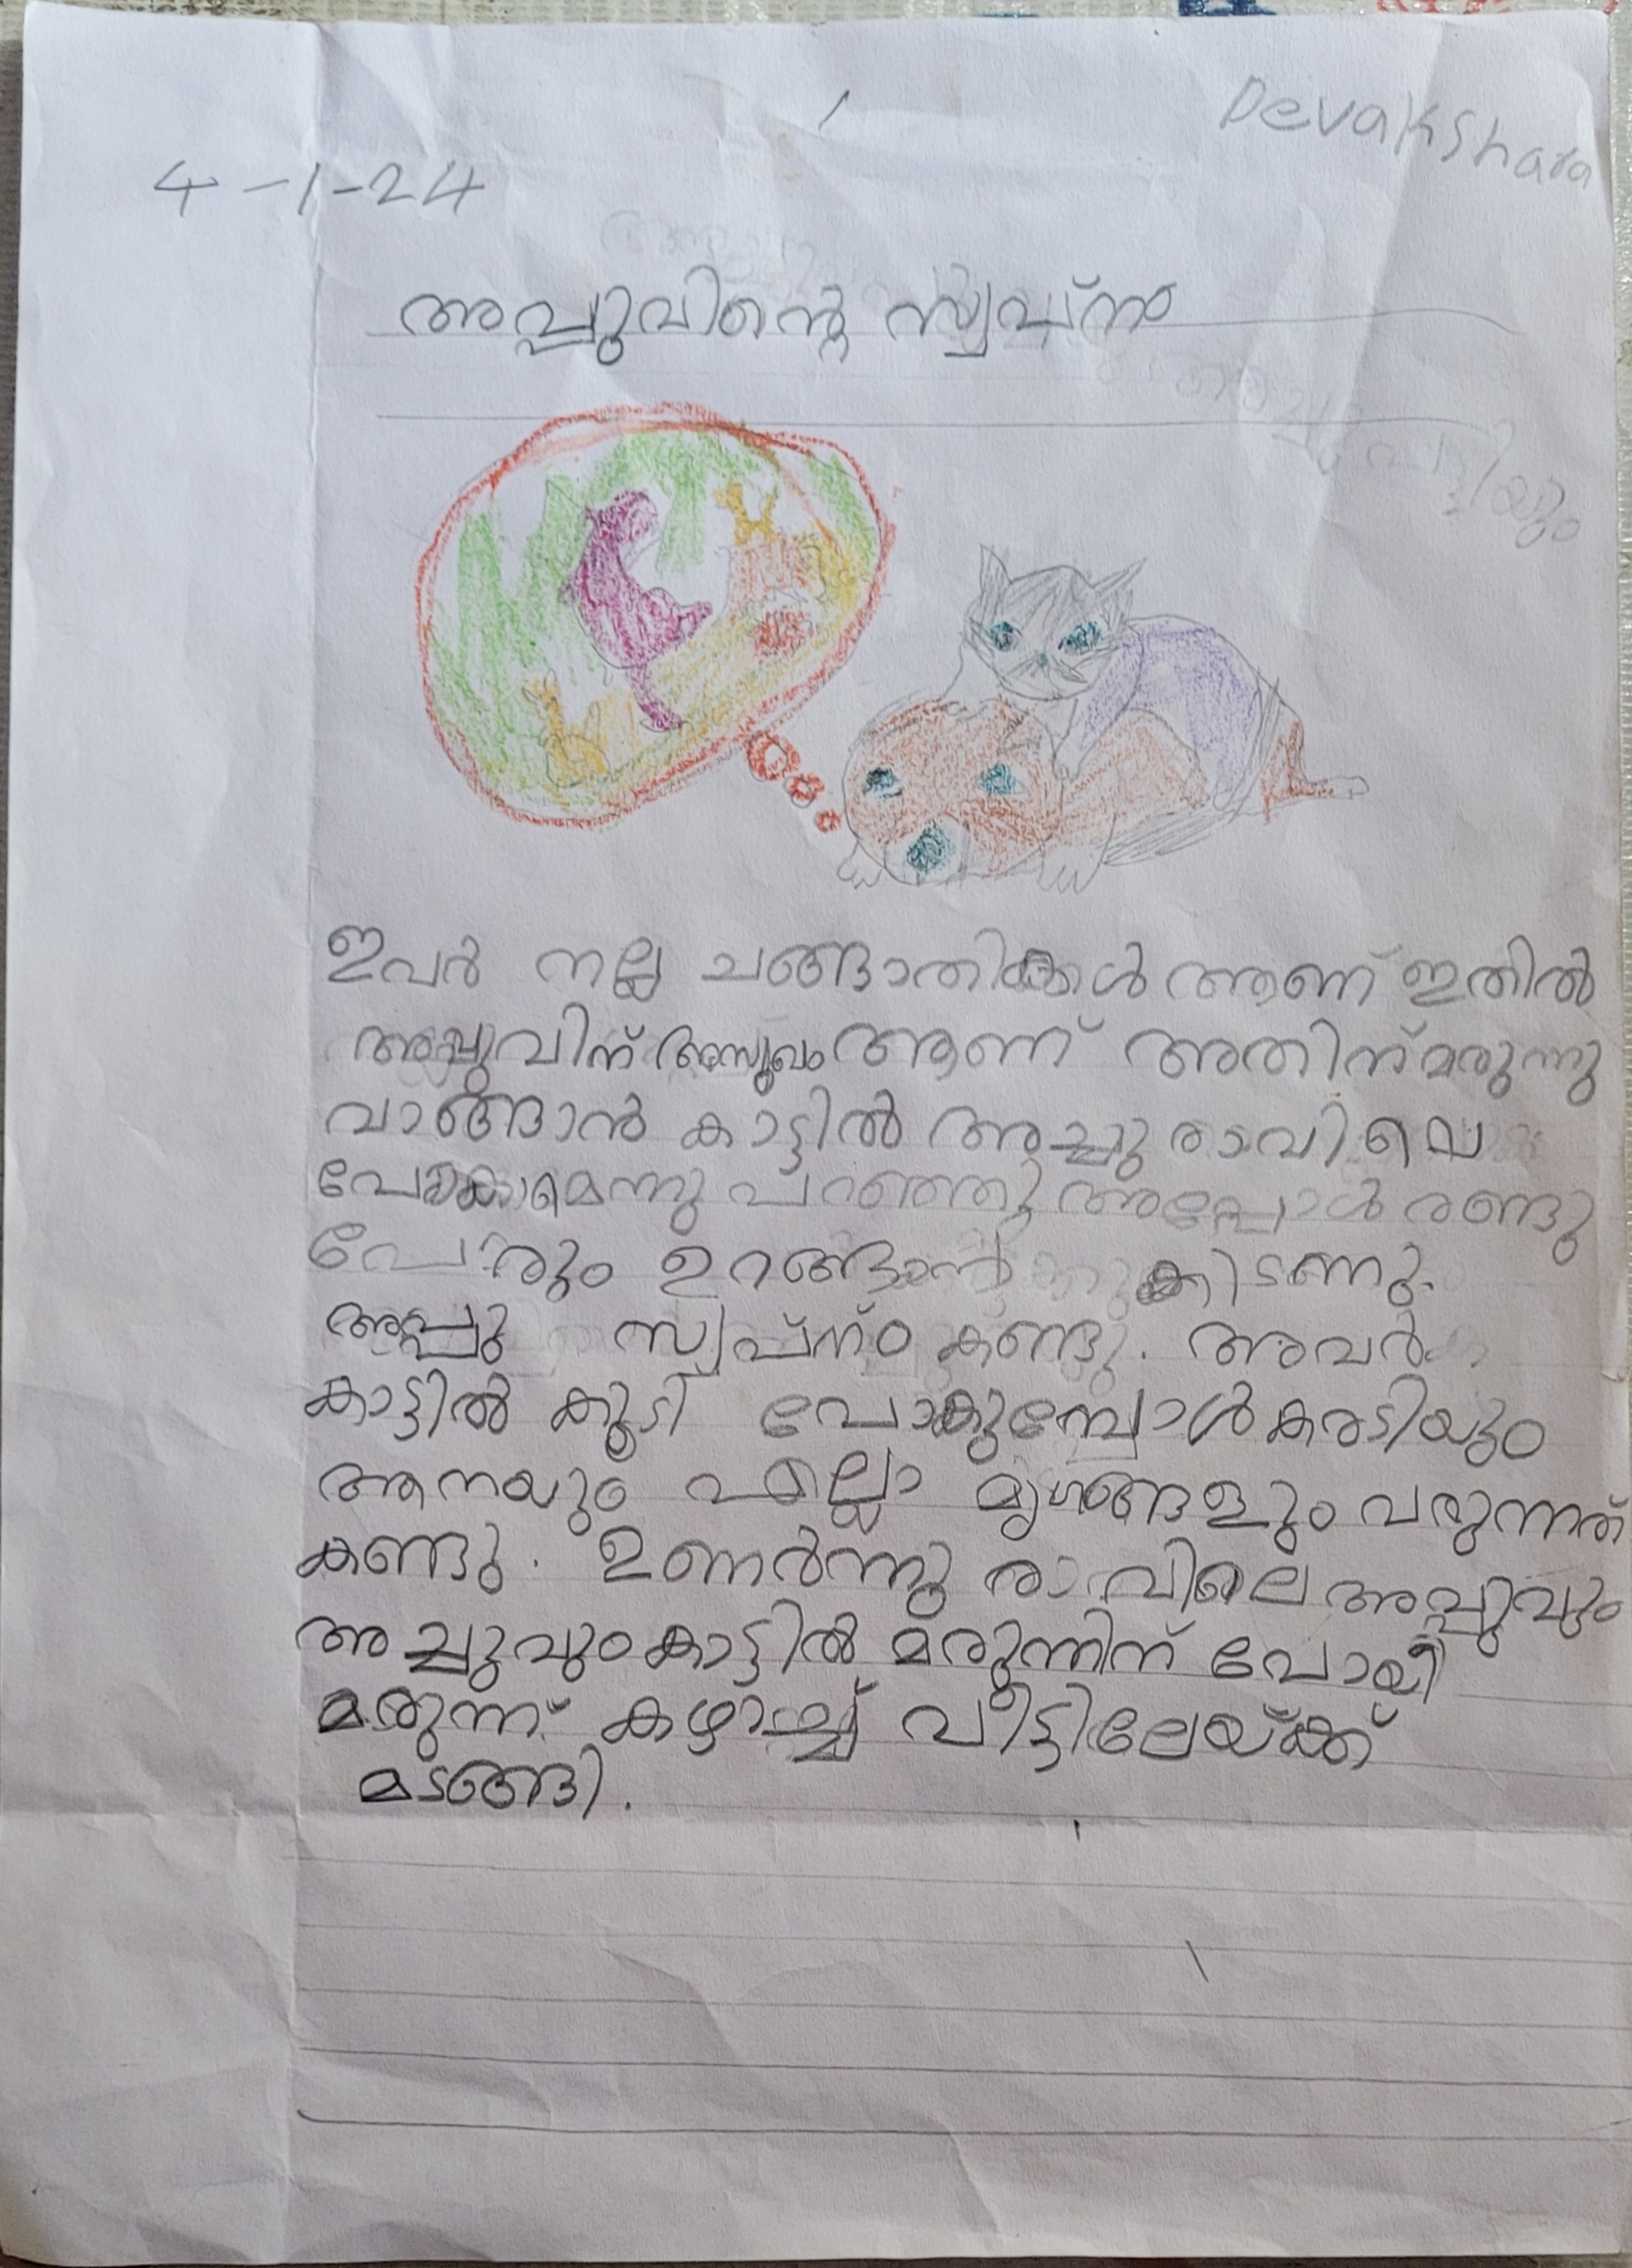 Devakshara
4-1-24
അപ്പുവിന്റെ സ്വപ്നം
ഇവർ നല്ല ചങ്ങാതിക്കൾ ആണ് ഇതിൽ
അപ്പുവിന് അസുഖം ആണ് അതിന് മരുന്നു
വാങ്ങാൻ കാട്ടിൽ അച്ചു രാവിലെ
പോകാമെന്നു പറഞ്ഞു അപ്പോൾ രണ്ടു
പേരും ഉറങ്ങാൻ കിടന്നു.
അപ്പു സ്വപ്നം കണ്ടു. അവർ
കാട്ടിൽ കൂടി പോകുമ്പോൾ കരടിയും
ആനയും എല്ലാ മൃഗങ്ങളും വരുന്നത്
കണ്ടു. ഉണർന്നു രാവിലെ അപ്പുവും
അച്ചുവും കാട്ടിൽ മരുന്നിന് പോയി
മരുന്ന് വീട്ടിലേയ്ക്ക്
മടങ്ങി.